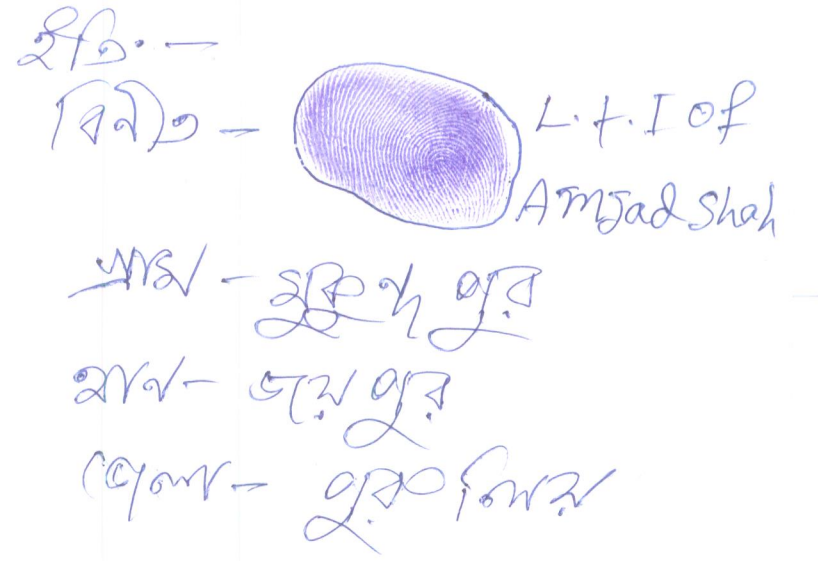 ইতি. —
বিনীত — L.T.I Of
Amjad Shah
গ্রাম - মুকুন্দ পুর
থানা - জয়পুর
জেলা - পুরুলিয়া